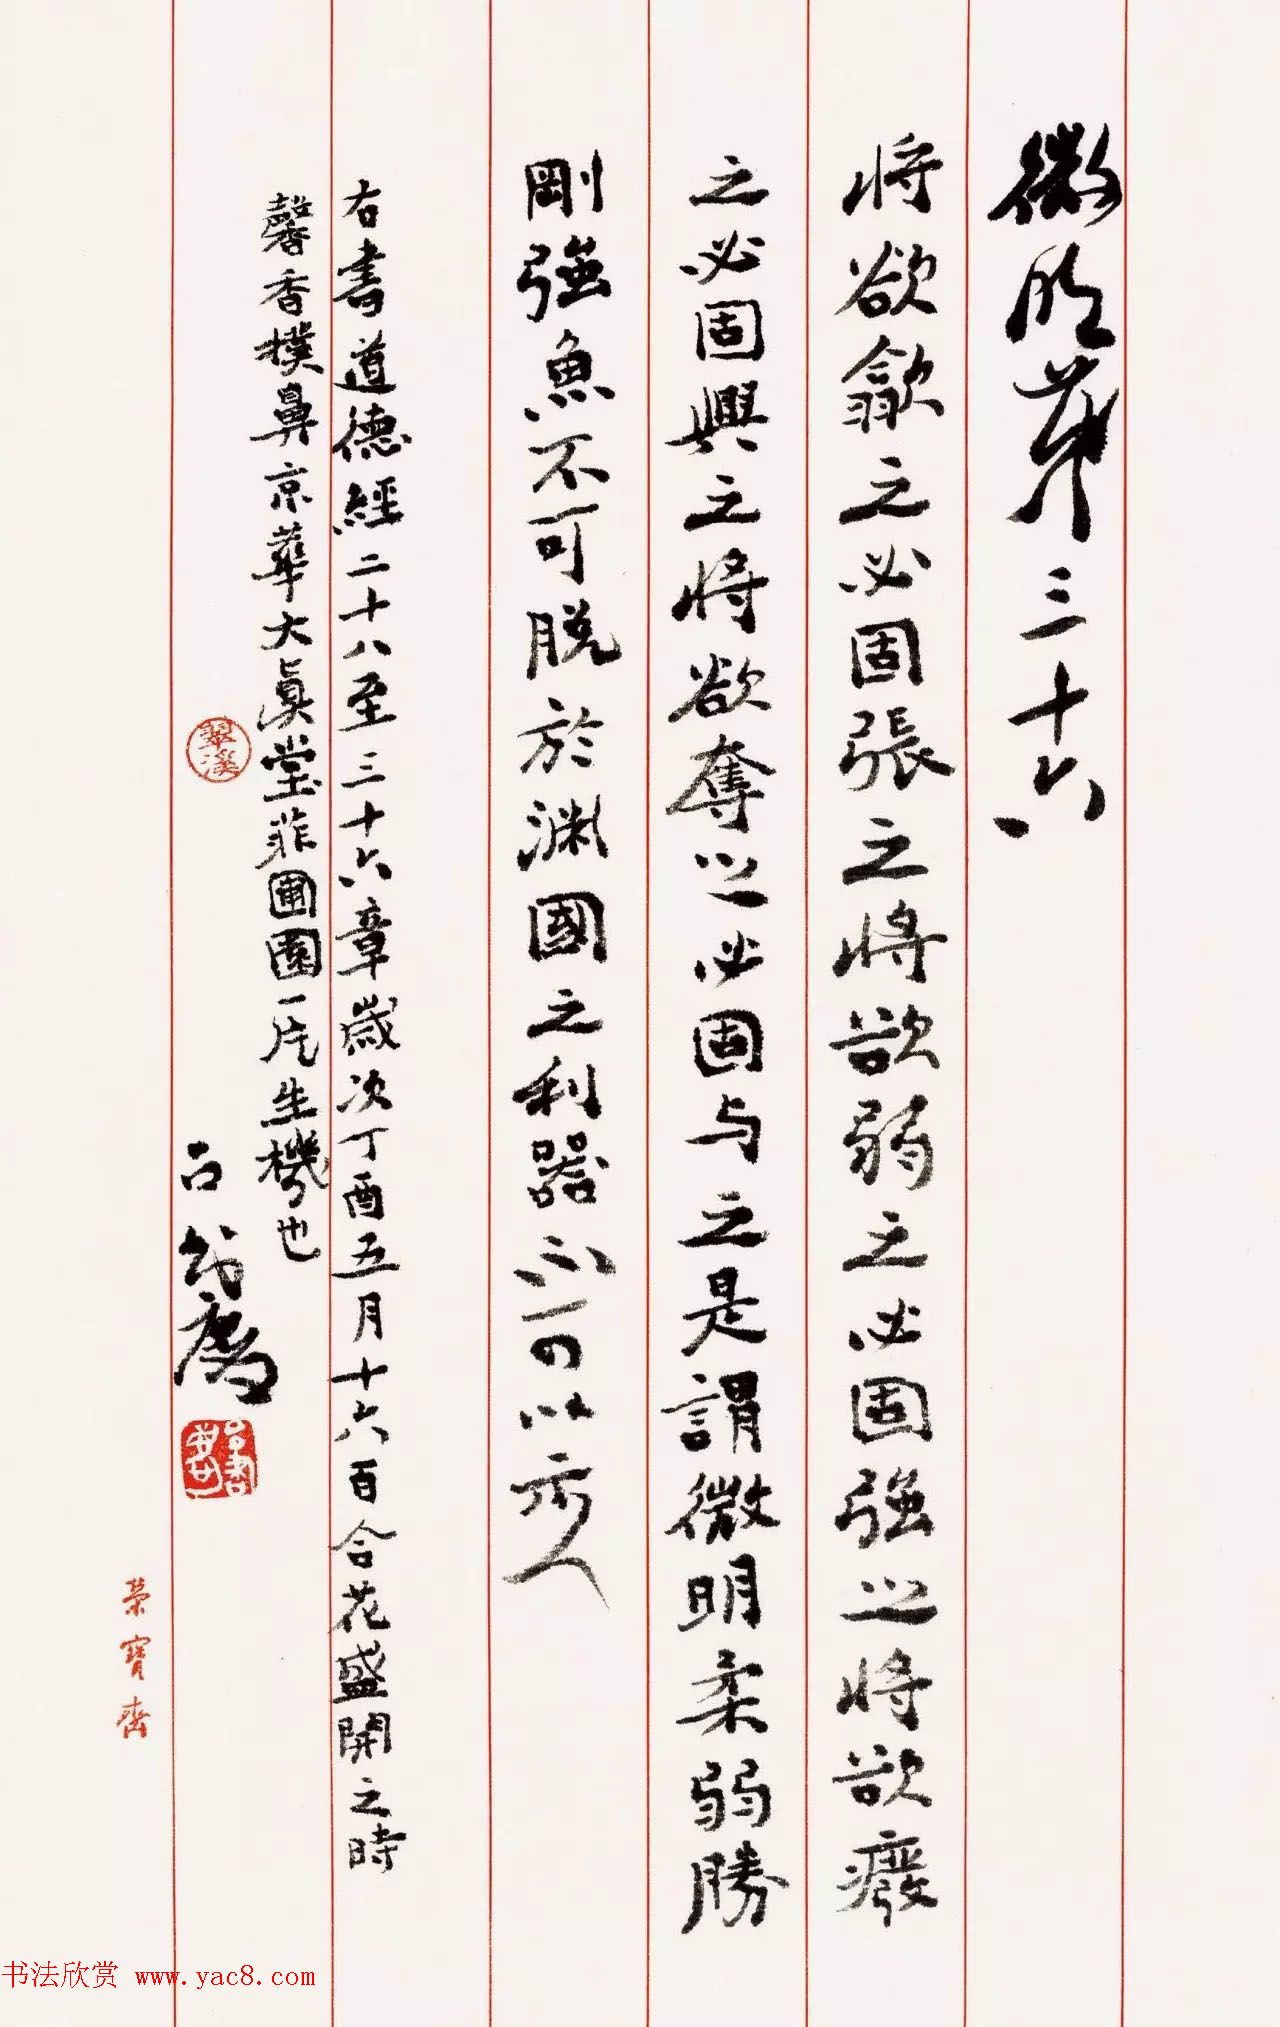 微明第三十六
将欲歙之必固張之将欲弱之必固強之将欲癈
之必固興之将欲奪之必固与之是謂微明柔弱勝
剛強魚不可脱於渊國之利器不可以示人
右書道德經二十八至三十六章歲次丁酉五月十六百合花盛開之時
馨香撲鼻京華大真堂菲圃園一片生機也
翠溪
榮寶齋
书法欣赏 www.yac8.com